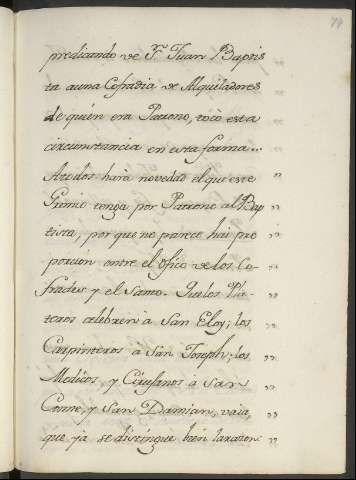 74
predicando de Sn. Juan Baptis
ta a una Cofradia de Alquiladores
de quién era Patrono, tocó esta
circunstancia en esta forma...
A todos hará novedad el que este
Gremio tenga por Patrono al Bap
tista, por que no parece hai pro
porcion entre el Oficio de los Co-
frades y el Santo. Que los Pla-
teros celebren à San Eloy; los
Carpinteros à San Joseph; los
Medicos, y Cirujanos à San
Cosme, y San Damian, vaia,
que ya se distingue bien la razon